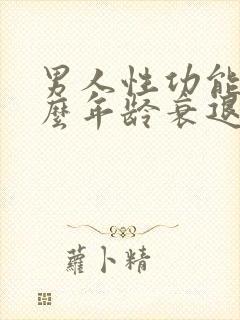 男人性功能
麼年龄衰退
蘿卜精